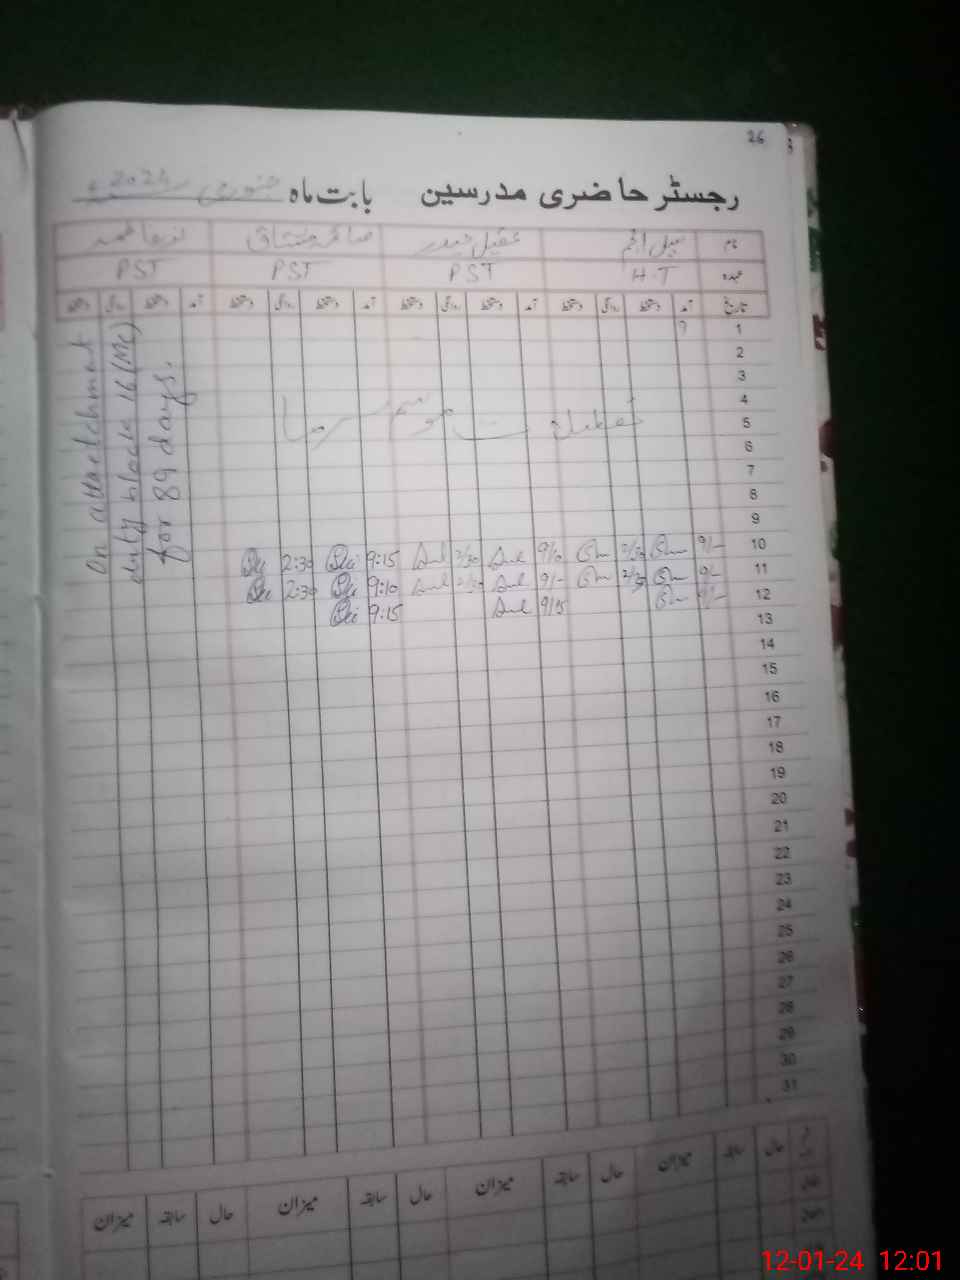 26
رجسٹر حاضری مدرسین بابت ماہ جنوری 2024ء
نام سہیل انجم عقیل حیدر صائمہ مشتاق فاطمہ
عہدہ H.T PST PST PST
تاریخ آمد دستخط روانگی دستخط آمد دستخط روانگی دستخط آمد دستخط روانگی دستخط آمد دستخط روانگی دستخط
1 9
2
3
4
تعطیلات موسم سرما
5
6
7
8
9
10 9/- 2/30 9/10 2/30 9:15 2:30
11 9/- 2/30 9/- 2/30 9:10 2:30
12 9/- 9/15 9:15
13
14
15
16
17
18
19
20
21
22
23
24
25
26
27
28
29
30
31
On attactchment
duty block 16 (MC)
for 89 days.
حال سابقہ میزان حال سابقہ میزان حال سابقہ میزان حال سابقہ میزان
12-01-24 12:01